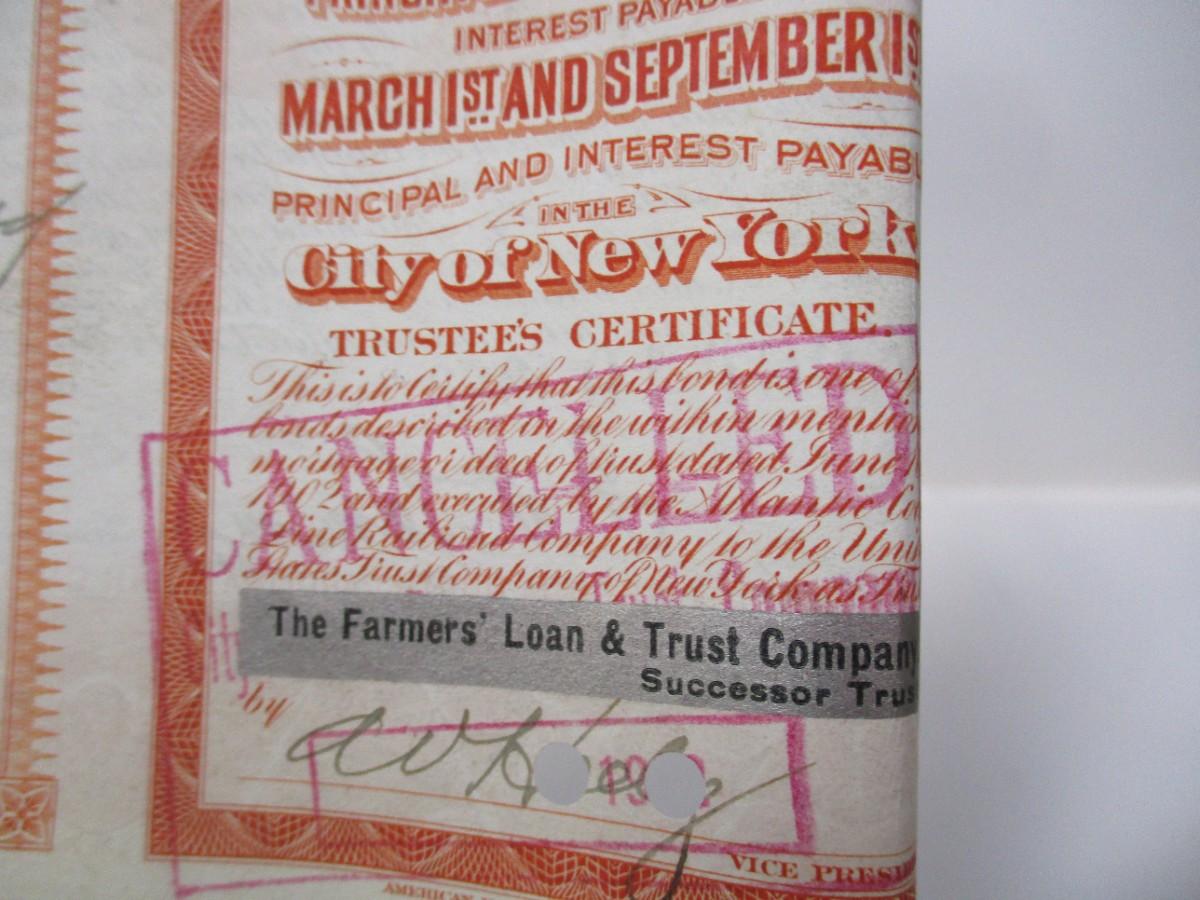 INTEREST PAYAB
MARCH 1ST AND SEPTEMBER 1S
PRINCIPAL AND INTEREST PAYAB
IN THE
City of New York
TRUSTEE'S CERTIFICATE.
This is to Certify that this bond is one of
bonds described in the within mention
mortgage or deed of trust dated June
1902 and executed by the Atlantic Co
Line Railroad Company to the Unit
States Trust Company of New York as Tru
CANCELLED
The Farmers' Loan & Trust Company
Successor Trus
by
VICE PRESI
AMERICAN